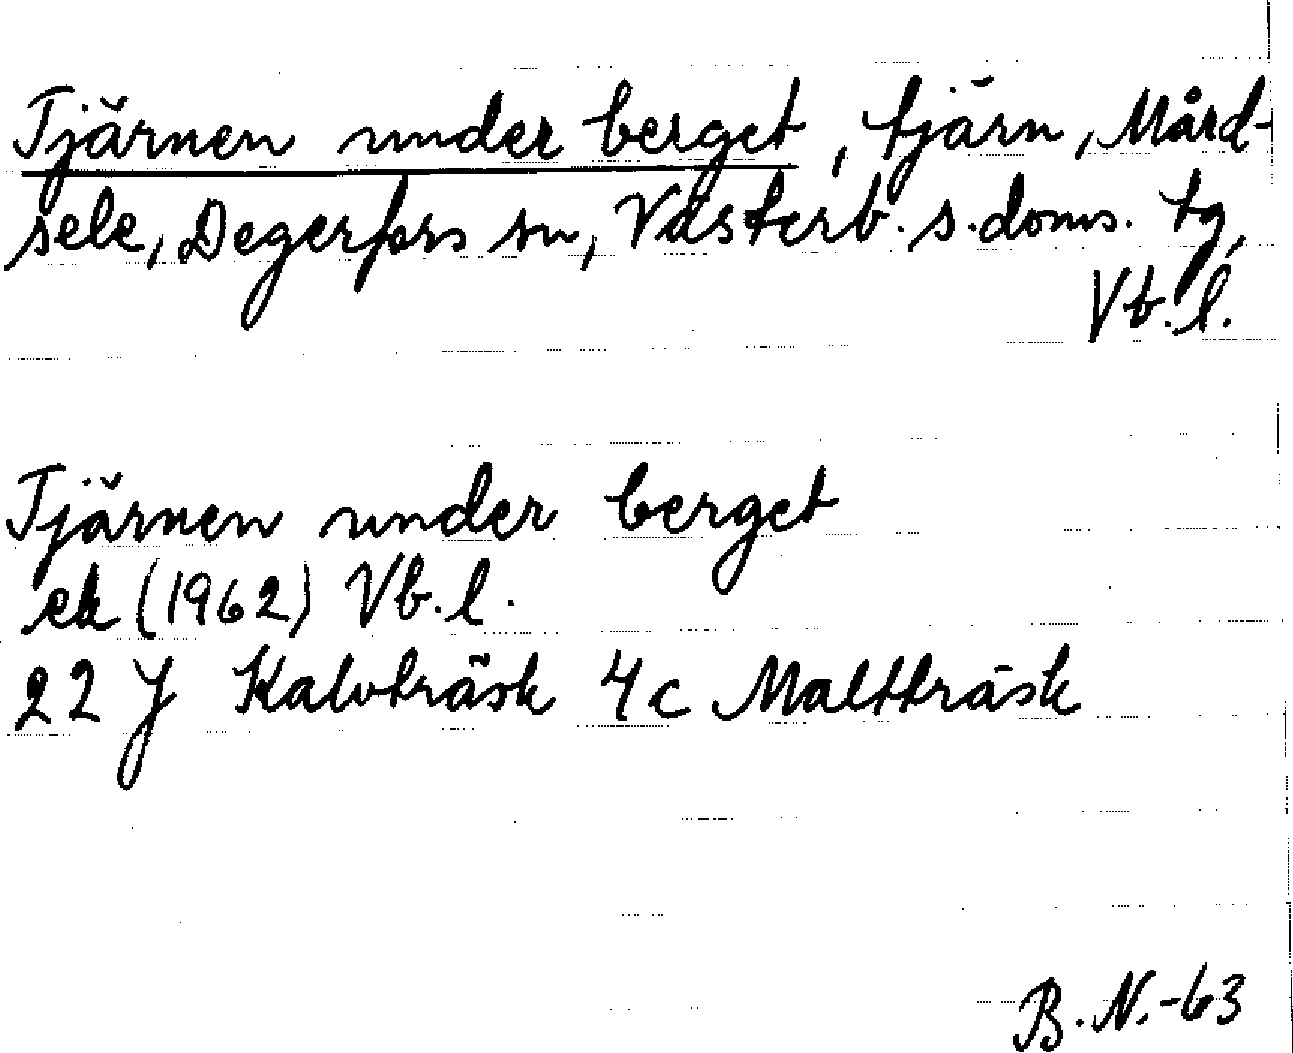 Tjärnen under berget, tjärn, Mård-
sele, Degerfors sn, Västerb. s. doms. tg,
Vb. l.
Tjärnen under berget
ek (1962) Vb. l.
22 J Kalvträsk 4c Maltträsk
B. N. -63